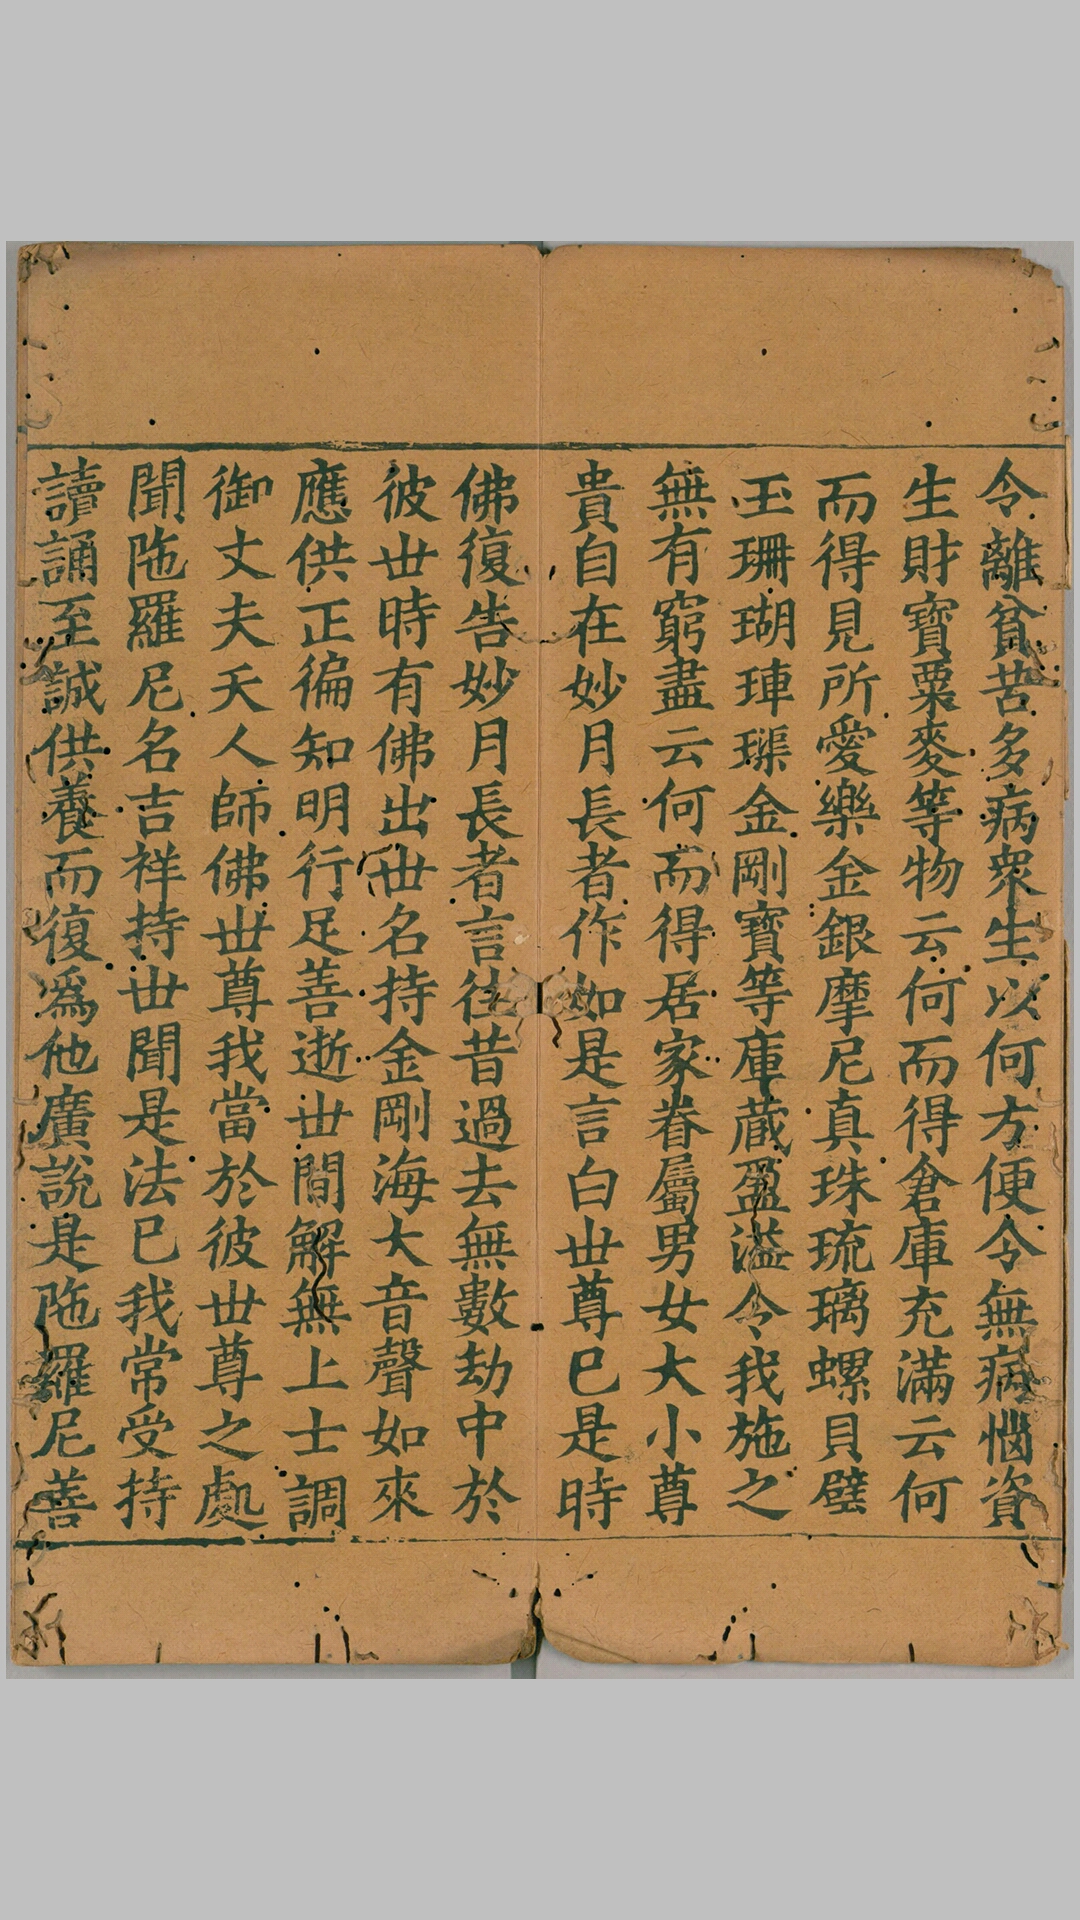 令離貧苦多病衆生以何方便令無病惱資
生財寶粟麥等物云何而得倉庫充滿云何
而得見所愛樂金銀摩尼真珠琉璃螺貝璧
玉珊瑚琿璖金剛寶等庫蔵盈溢令我施之
無有窮盡云何而得居家眷屬男女大小尊
貴自在妙月長者作如是言白世尊已是時
佛復告妙月長者言往昔過去無數劫中於
彼世時有佛出世名持金剛海大音聲如來
應供正徧知明行足善逝世間解無上士調
御丈夫天人師佛世尊我當於彼世尊之處
聞陁羅尼名吉祥持世聞是法已我常受持
讀誦至誠供養而復爲他廣說是陁羅尼善